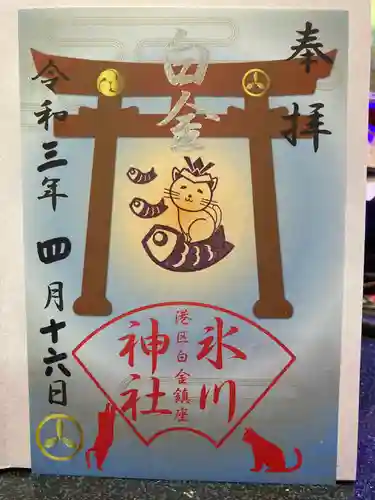 奉拝
白金
氷川
港区白金鎮座
神社
令和三年四月十六日